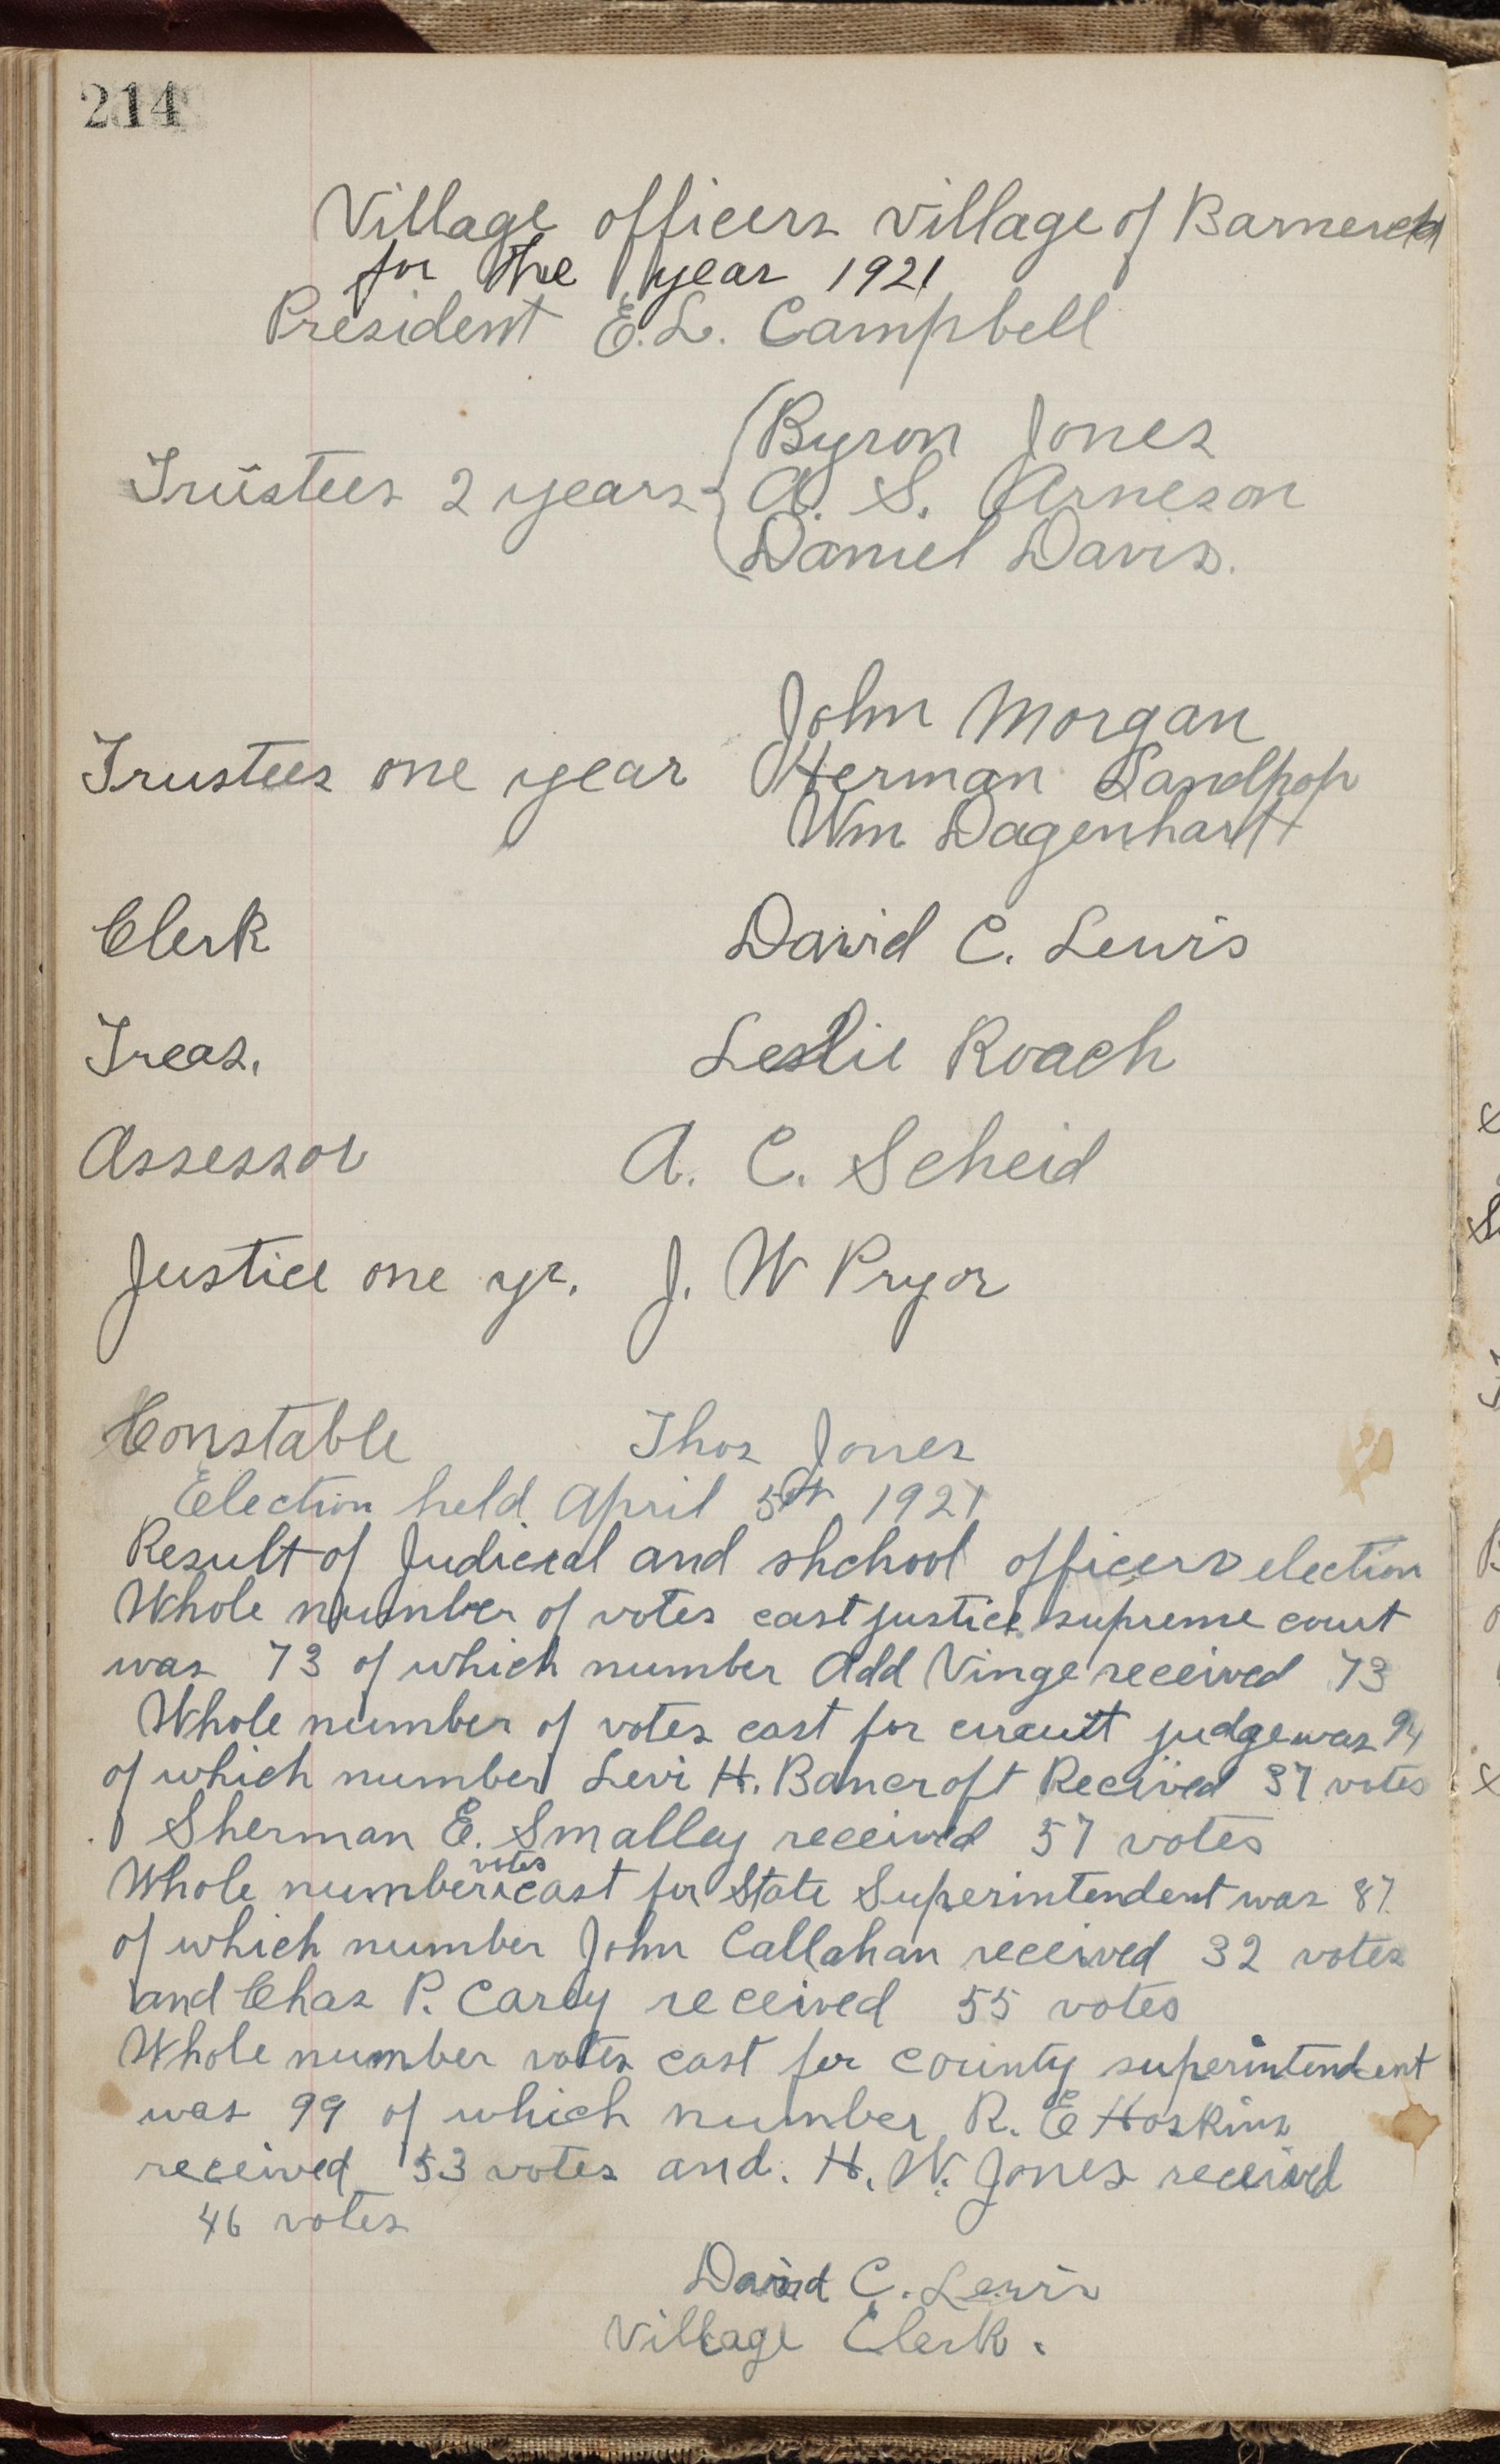 214
Village officers village of Barneveld
for the year 1921
President E. L. Campbell
Byron Jones
Trustees 2 years A. S. Arneson
Daniel Davis.
John Morgan
Trustees one year Herman Landhop
Wm Dagenhart
Clerk David C. Lewis
Treas. Leslie Roach
Assessor A. C. Scheid
Justice one yr. J. W Pryor
Constable Thos Jones
Election held April 5th 1921
Result of Judicial and shchool officers election
Whole number of votes cast justice supreme court
was 73 of which number Add Vinge received 73
Whole number of votes cast for circuit judge was 94
of which number Levi H. Bancroft Recived 37 votes
Sherman E. Smalley received 57 votes
votes
Whole number cast for State Superintendent was 87
of which number John Callahan received 32 votes
and Chas P. Carey received 55 votes
Whole number votes cast for county superintendent
was 99 of which number R. E Hoskins
received 53 votes and. H. W. Jones received
46 votes
David C. Lewis
Village Clerk.